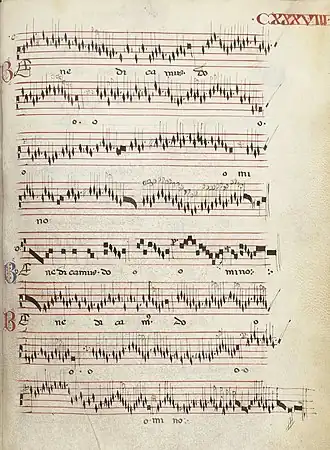 CXXXVIII
BE ne di ca mus. do
o. o
o o mi
no
BE ne di camus. do o o mino.
BE ne di ca mꝰ. do o
o. o o o
o mi no.